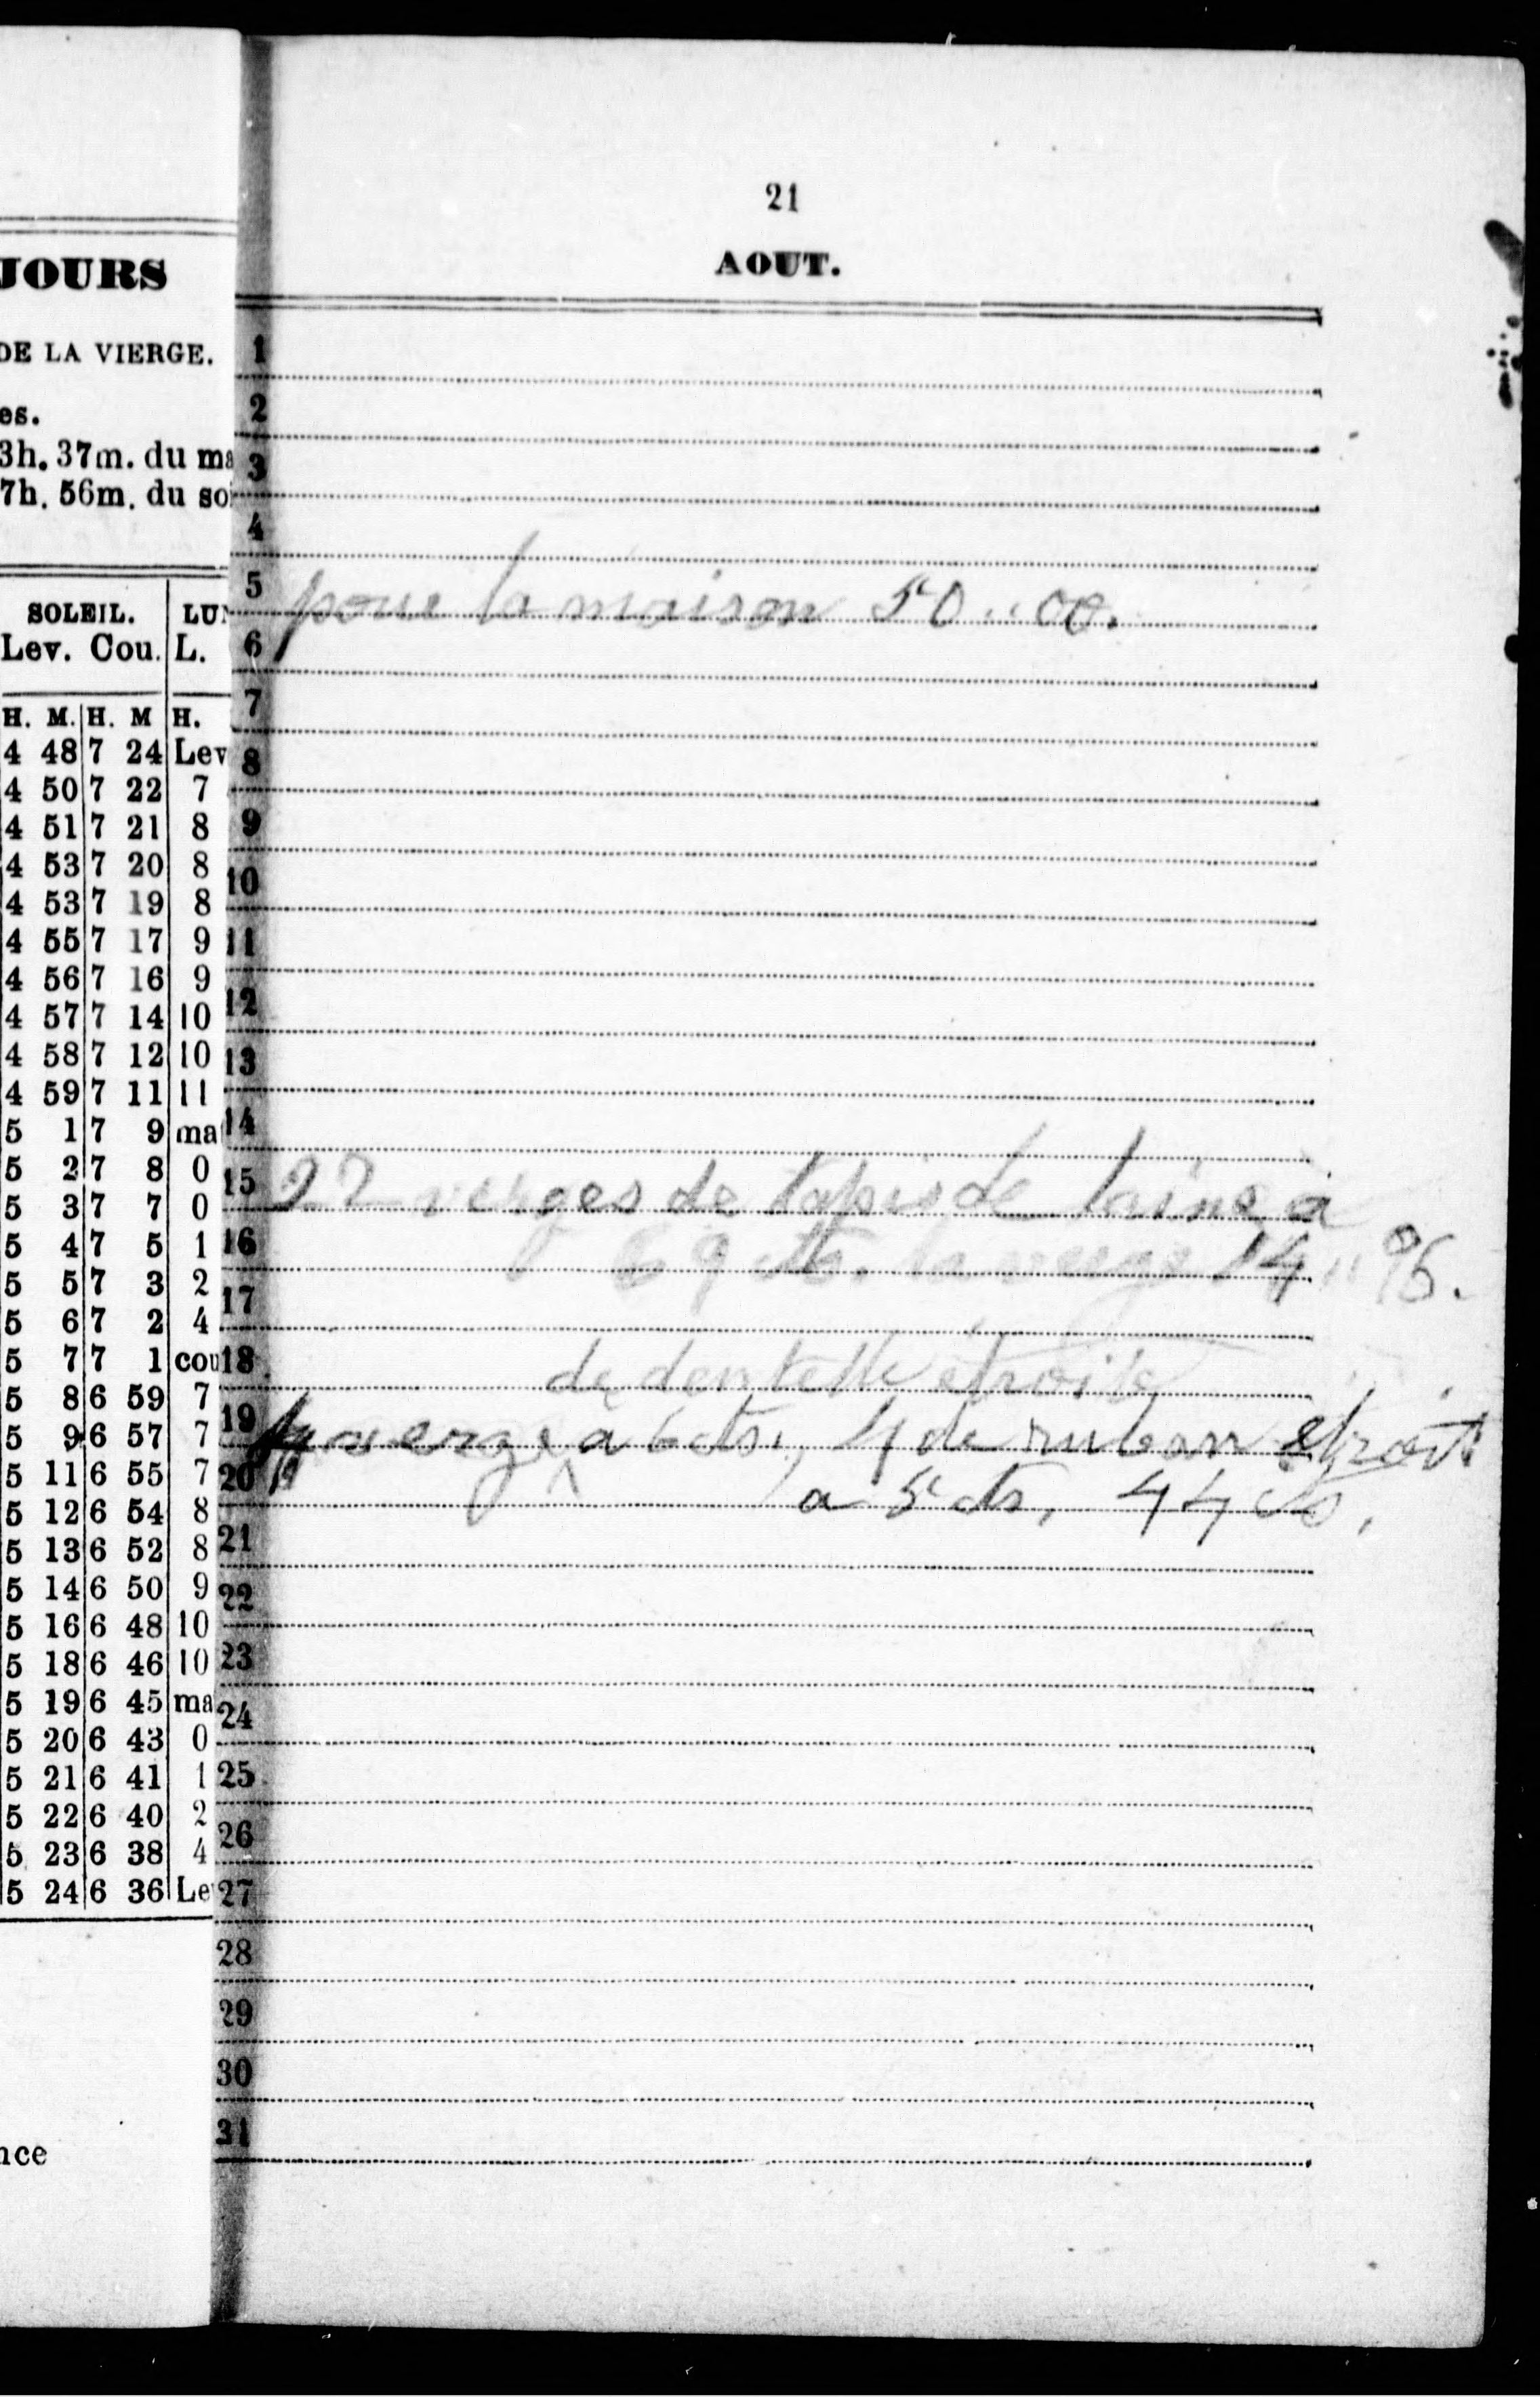 JOURS
DE LA VIERGE.
es.
3h. 37m. du ma
7h. 56m. du so
SOLEIL. LU
Lev. Cou. L.
H. M. H. M H.
4 48 7 24 Lev
4 50 7 22 7
4 51 7 21 8
4 53 7 20 8
4 53 7 19 8
4 55 7 17 9
4 56 7 16 9
4 57 7 14 10
4 58 7 12 10
4 59 7 11 11
5 1 7 9 ma
5 2 7 8 0
5 3 7 7 0
5 4 7 5 1
5 5 7 3 2
5 6 7 2 4
5 7 7 1 cou
5 8 6 59 7
5 9 6 57 7
5 11 6 55 7
5 12 6 54 8
5 13 6 52 8
5 14 6 50 9
5 16 6 48 10
5 18 6 46 10
5 19 6 45 ma
5 20 6 43 0
5 21 6 41 1
5 22 6 40 2
5 23 6 38 4
5 24 6 36 Le
nce
21
AOUT.
1
2
3
4
5 pour la maison 50 .. 00.
6
7
8
9
10
11
12
13
14
15 22 verges de tapis de laine à
16 69 cts. la verge 14 " 96.
17
18 de dentelle étroite
19 4 verges à 6 cts, 4 de ruban étroit
20 a 5 cts, 44 cts,
21
22
23
24
25
26
27
28
29
30
31